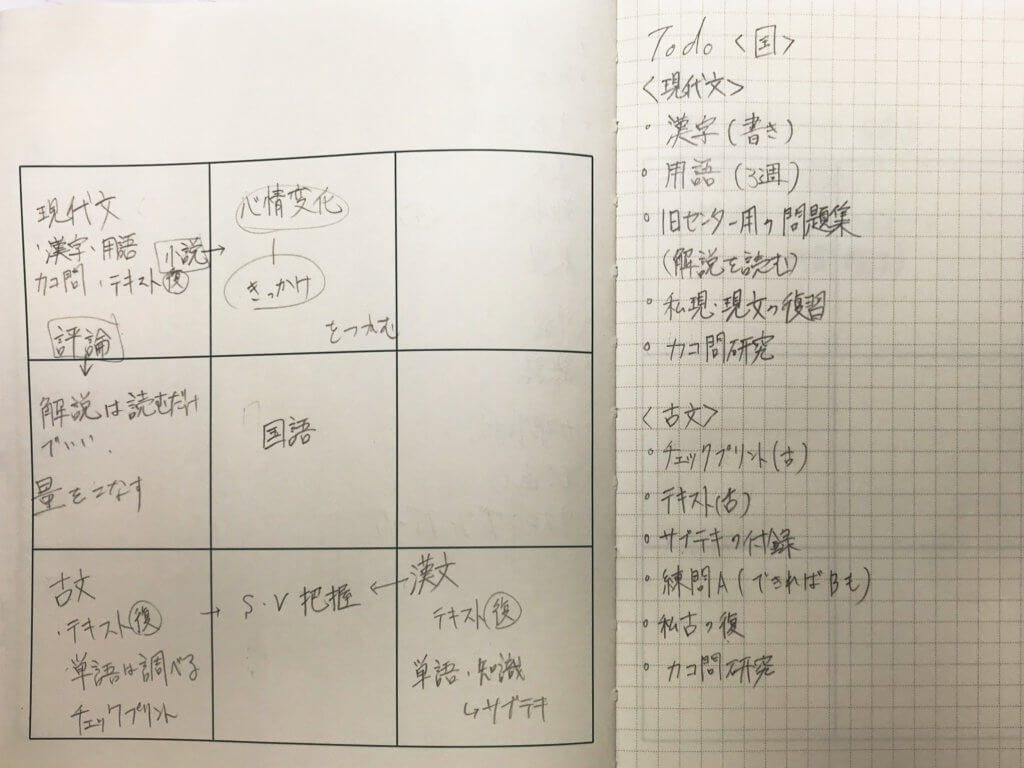 現代文
・漢字・用語
カコ問・テキスト復
小説→
評論
↓
心情変化
きっかけ
をつかむ
解説は読むだけ
でいい.
量をこなす
国語
古文
・テキスト復
単語は調べる
チェックプリント
→S・V把握←
漢文
テキスト復
単語・知識
↳サブテキ
Todo <国>
<現代文>
・漢字(書き)
・用語(3週)
・旧センター用の問題集
(解説を読む)
・私現・現文の復習
・カコ問研究
<古文>
・チェックプリント(古)
・テキスト(古)
・サブテキの付録
・練問A(できればBも)
・私古の復
・カコ問研究